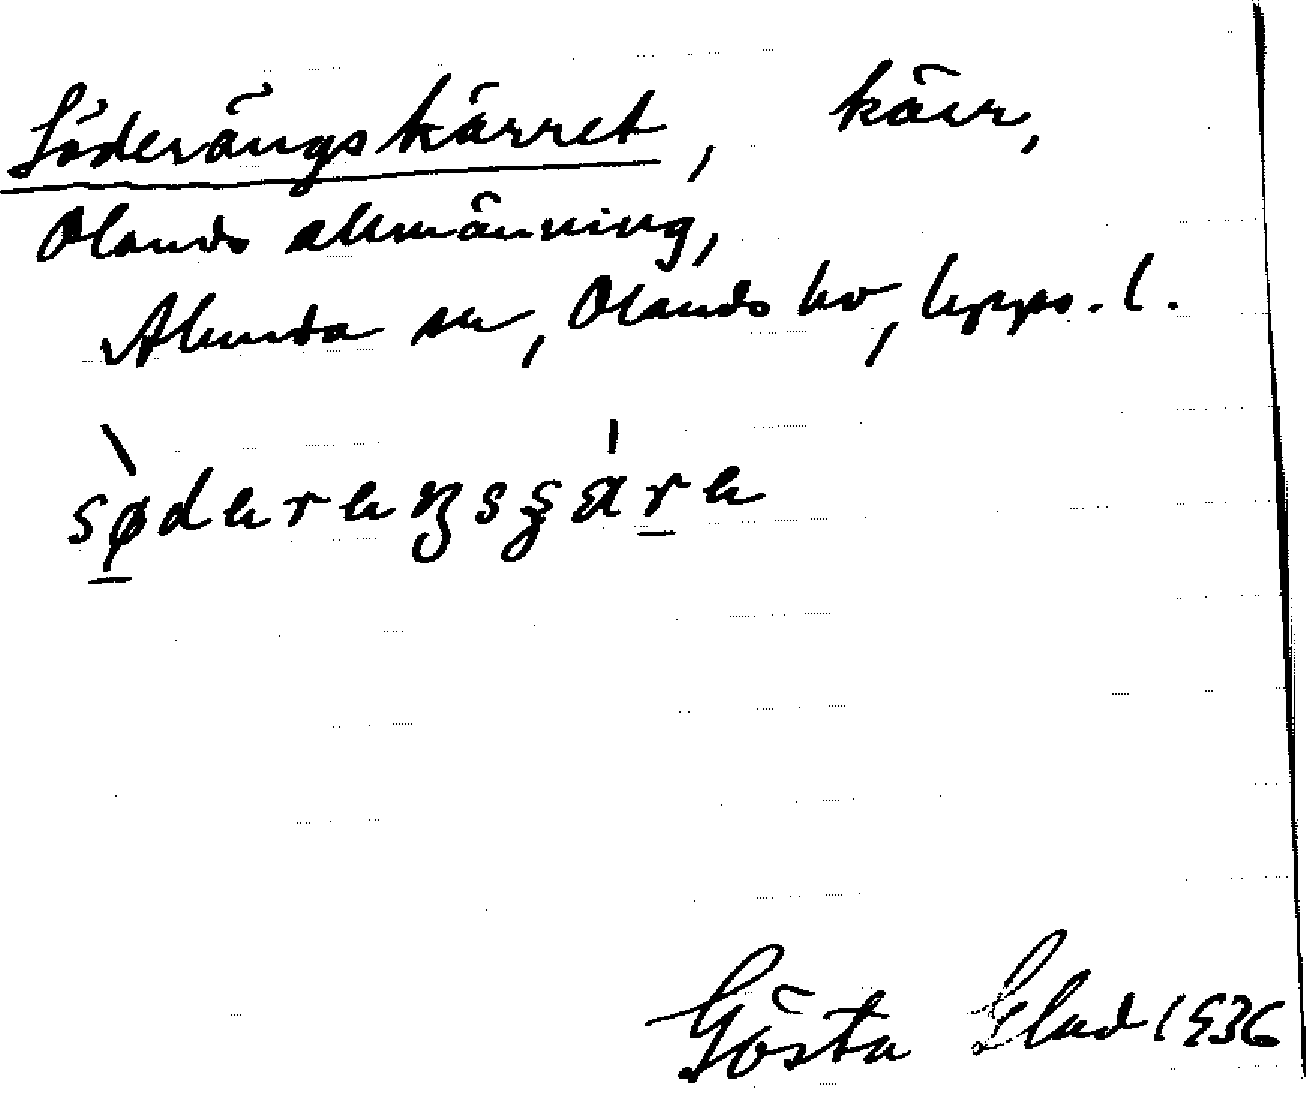 Söderängskärret, kärr,
Olands allmänning,
Alunda sn, Olands hd, Upps. l.
Gösta Elad 1936